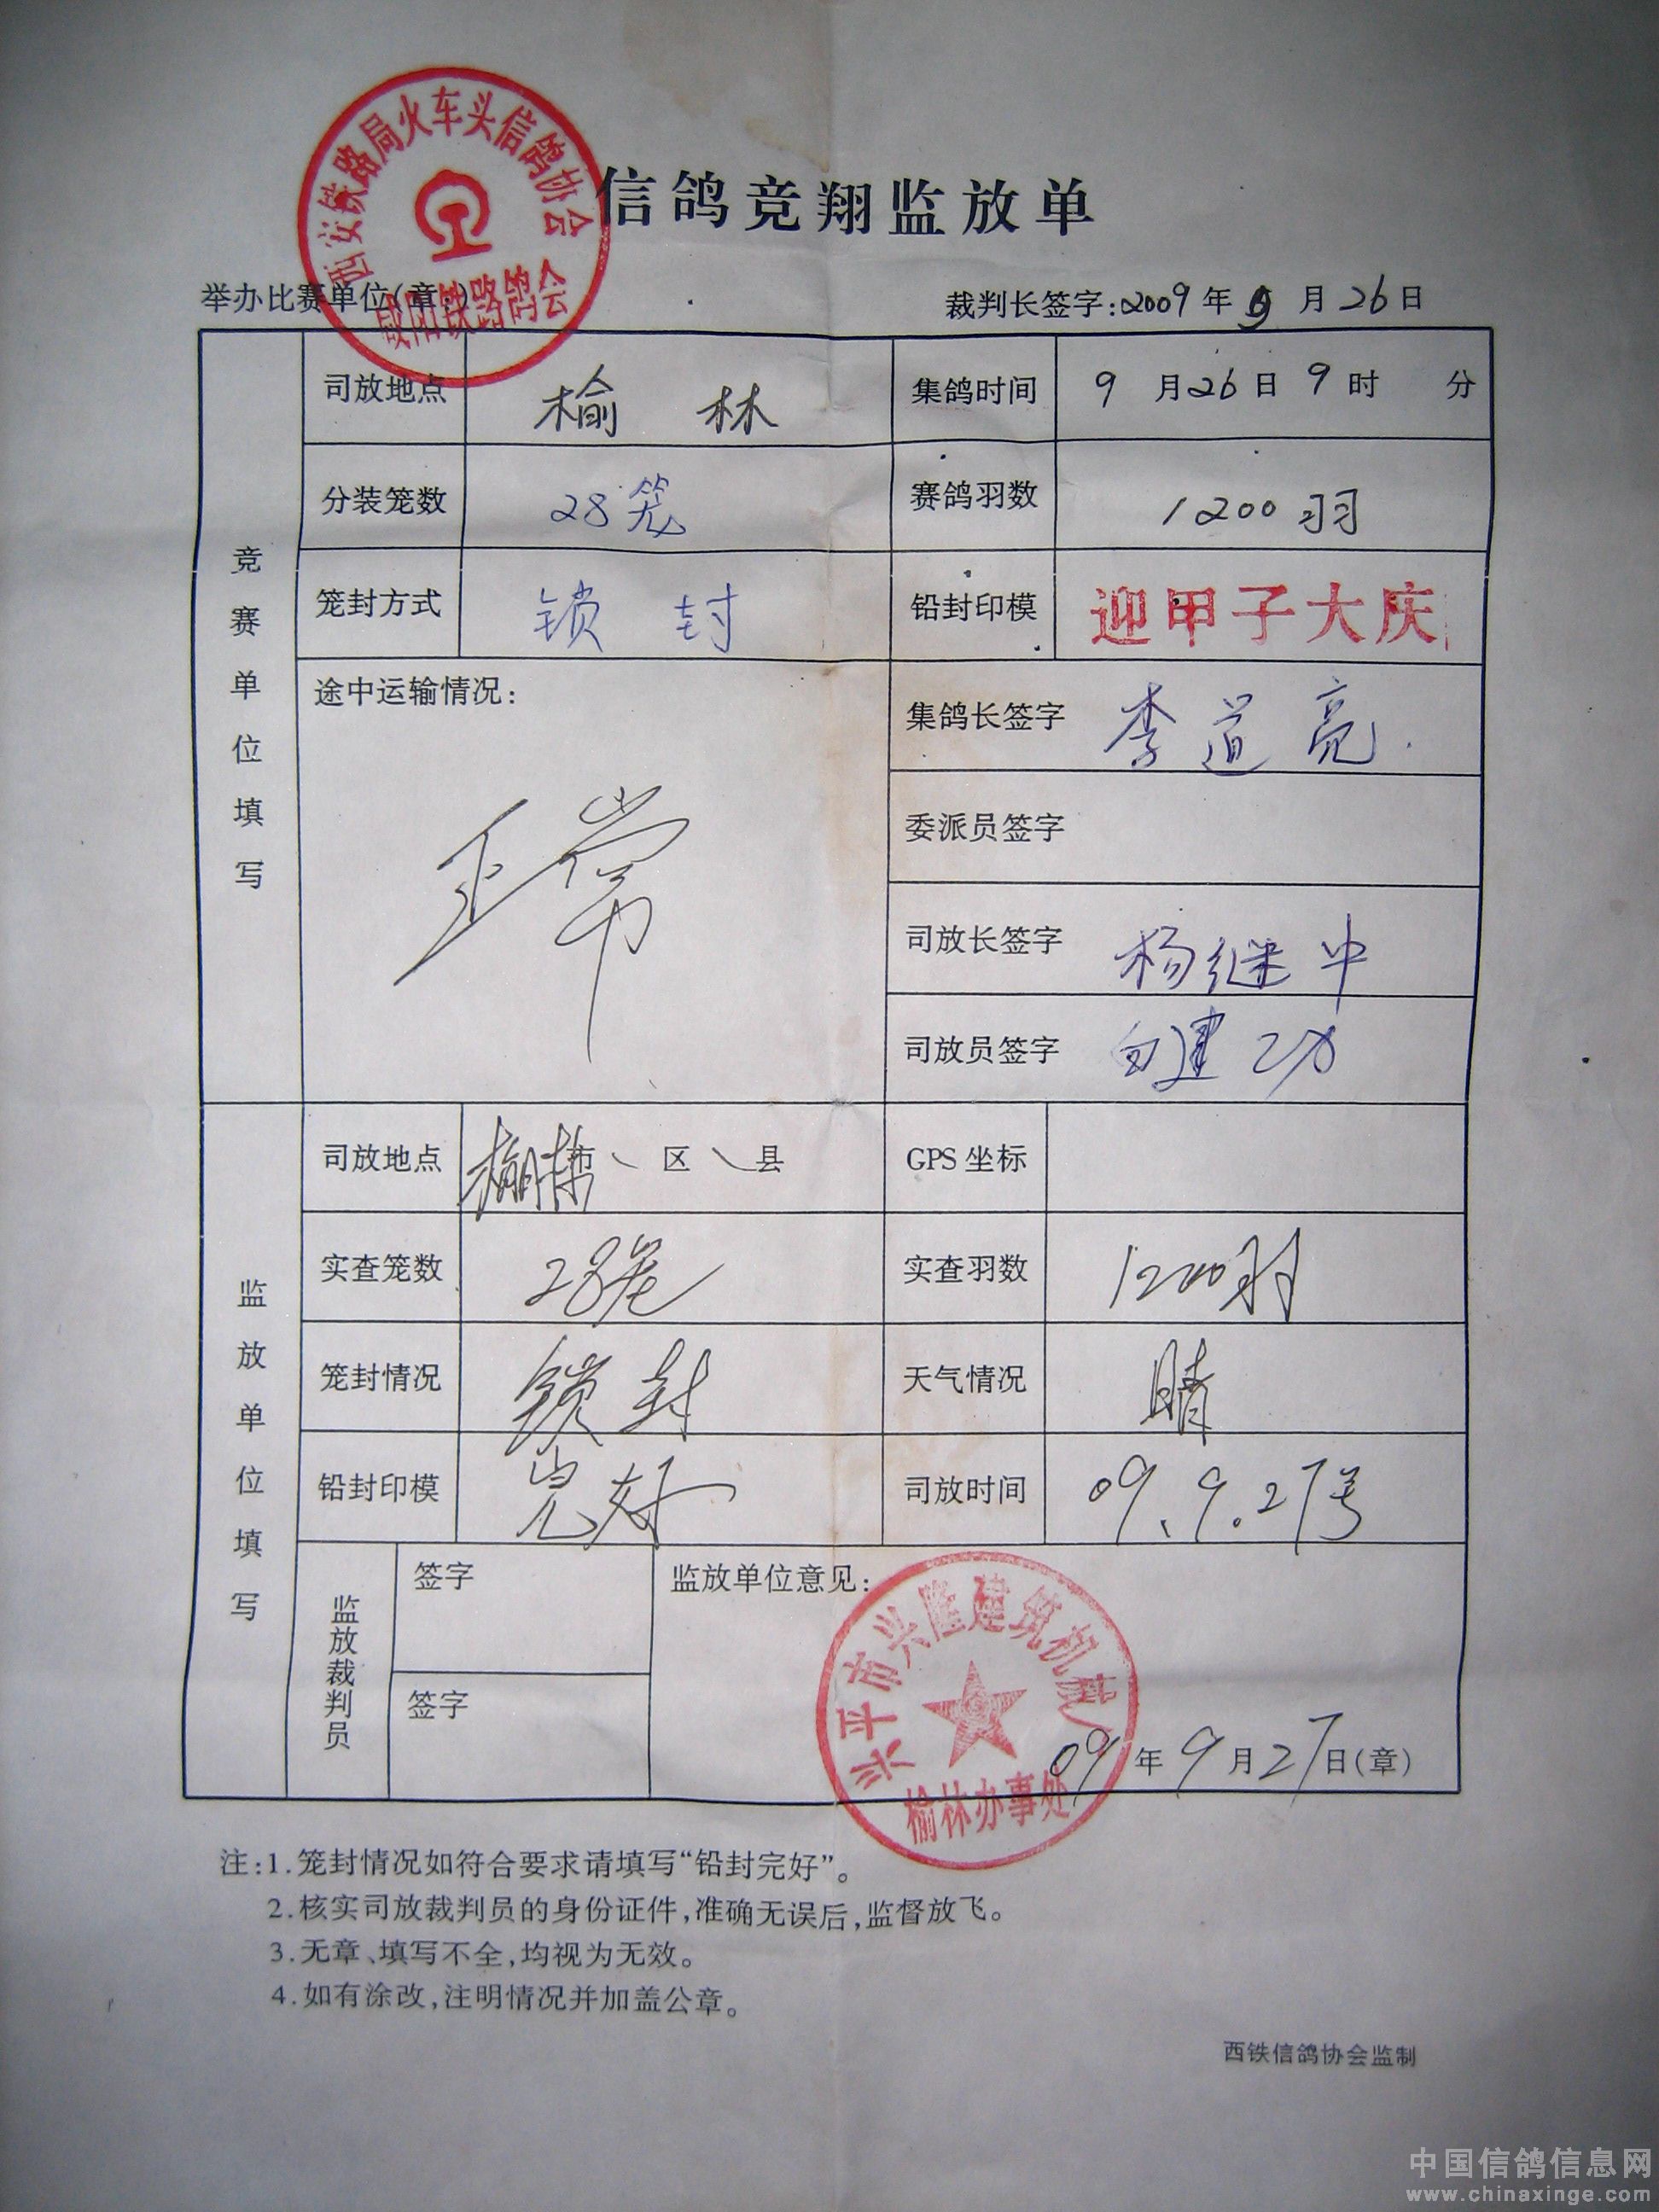 西安铁路局火车头信鸽协会
咸阳铁路鸽会
信鸽竞翔监放单
举办比赛单位(章:)
裁判长签字:2009年9月26日
竞赛单位填写
司放地点 榆林 集鸽时间 9月26日9时 分
分装笼数 28笼 赛鸽羽数 1200羽
笼封方式 锁封 铅封印模 迎甲子大庆
途中运输情况: 正常
集鸽长签字 李道亮
委派员签字
司放长签字 杨继中
司放员签字 白建功
监放单位填写
司放地点 榆林市 区 县 GPS坐标
实查笼数 28笼 实查羽数 1200羽
笼封情况 锁封 天气情况 晴
铅封印模 完好 司放时间 09.9.27号
监放裁判员
签字
签字
监放单位意见:
兴平市兴隆建筑机械
榆林办事处
09年9月27日(章)
注:1.笼封情况如符合要求请填写“铅封完好”。
2.核实司放裁判员的身份证件,准确无误后,监督放飞。
3.无章、填写不全,均视为无效。
4.如有涂改,注明情况并加盖公章。
西铁信鸽协会监制
中国信鸽信息网
www.chinaxinge.com